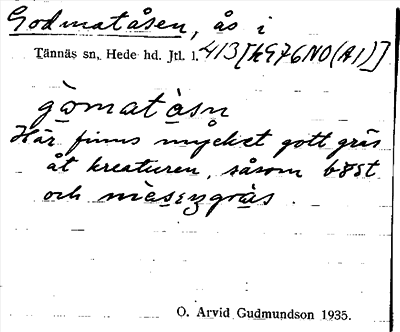 Godmatåsen, ås i
Tännäs sn, Hede hd. Jtl. l. 413[hG76NO(A1)]
gòmatåsn
Här finns mycket gott gräs
åt kreaturen, såsom
och
O. Arvid Gudmundson 1935.